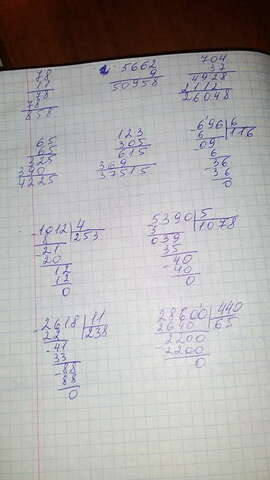 78
11
78
78
858
5662
9
50958
704
37
4928
2112
26048
65
65
325
390
4225
123
305
615
369
37515
-696 | 6
6 | 116
09
6
36
-36
0
-1012 | 4
8 | 253
-21
20
12
12
0
5390 | 5
5 | 1078
039
35
40
-40
0
-2618 | 11
22 | 238
-41
33
-88
88
0
28600 | 440
2640 | 65
2200
-2200
0